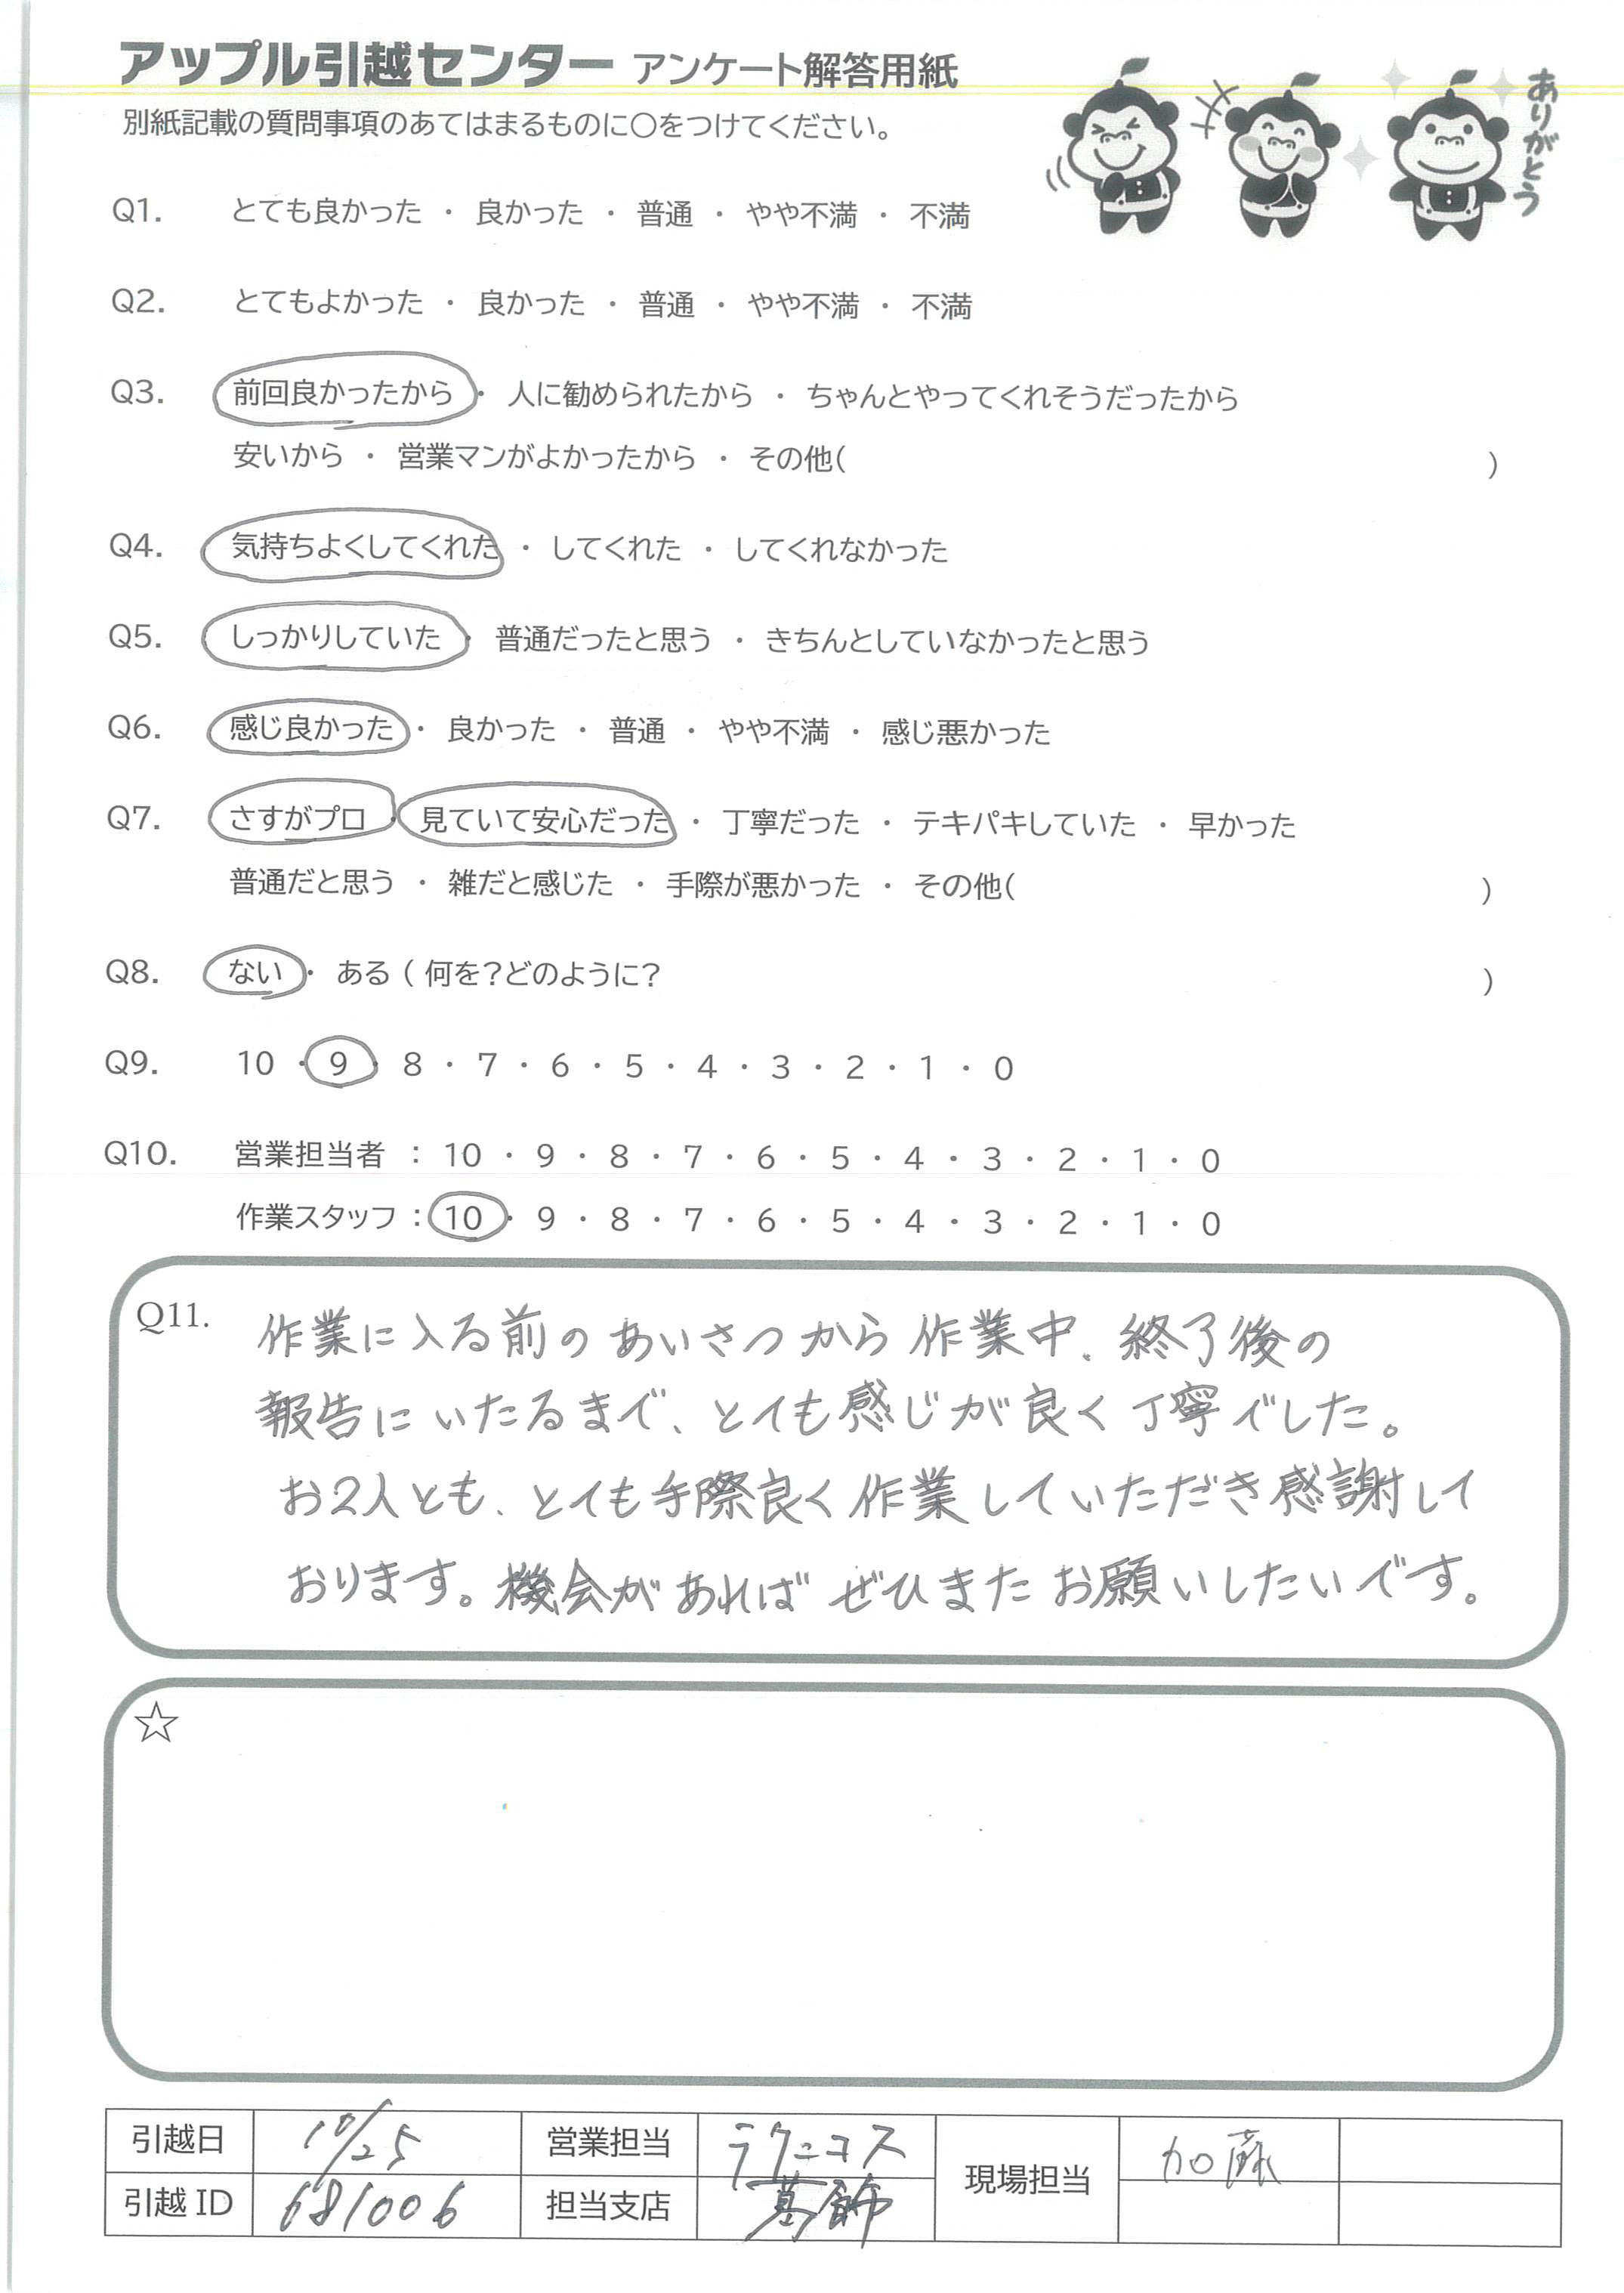 アップル引越センター アンケート解答用紙
別紙記載の質問事項のあてはまるものに○をつけてください。
ありがとう
Q1. とても良かった ・ 良かった ・ 普通 ・ やや不満 ・ 不満
Q2. とてもよかった ・ 良かった ・ 普通 ・ やや不満 ・ 不満
Q3. 前回良かったから ・ 人に勧められたから ・ ちゃんとやってくれそうだったから
安いから ・ 営業マンがよかったから ・ その他( )
Q4. 気持ちよくしてくれた ・ してくれた ・ してくれなかった
Q5. しっかりしていた ・ 普通だったと思う ・ きちんとしていなかったと思う
Q6. 感じ良かった ・ 良かった ・ 普通 ・ やや不満 ・ 感じ悪かった
Q7. さすがプロ ・ 見ていて安心だった ・ 丁寧だった ・ テキパキしていた ・ 早かった
普通だと思う ・ 雑だと感じた ・ 手際が悪かった ・ その他( )
Q8. ない ・ ある ( 何を?どのように? )
Q9. 10 ・ 9 ・ 8 ・ 7 ・ 6 ・ 5 ・ 4 ・ 3 ・ 2 ・ 1 ・ 0
Q10. 営業担当者 : 10 ・ 9 ・ 8 ・ 7 ・ 6 ・ 5 ・ 4 ・ 3 ・ 2 ・ 1 ・ 0
作業スタッフ : 10 ・ 9 ・ 8 ・ 7 ・ 6 ・ 5 ・ 4 ・ 3 ・ 2 ・ 1 ・ 0
Q11. 作業に入る前のあいさつから作業中、終了後の
報告にいたるまで、とても感じが良く丁寧でした。
お2人とも、とても手際良く作業していただき感謝して
おります。機会があればぜひまたお願いしたいです。
☆
引越日 10/25 営業担当 ラクニコス 現場担当 加藤
引越ID 681006 担当支店